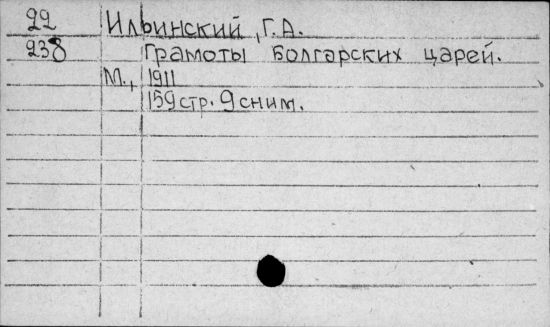 22 Ильинский, Г.А.
238 Грамоты Болгарских царей.
М., 1911
159 стр. 9 сним.